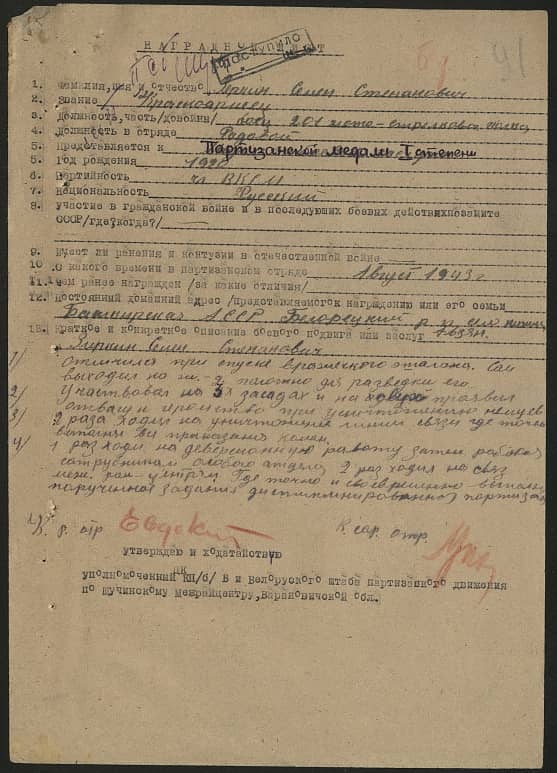 91
НАГРАДНОЙ ЛИСТ
ПОСТУПИЛО
1. Фамилия, имя и отчество Семен Степанович
2. Звание Красноармеец
3. Должность, часть/довойны/ 201 мото-стрелковый
4. Должность в отряде Рядовой
5. Представляется к Партизанской медали I степени
5. Год рождения
6. Партийность чл. ВКСМ
7. Национальность Русский
8. Участие в гражданской войне и в последующих боевых действияхпозащите
СССР/где?когда?/ —
9. Имеет ли ранения и контузии в отечественной войне —
10. С какого времени в партизанском отряде Август 1943 г
11. Чем ранее награжден /за какие отличия/
12. Постоянный домашний адрес /представляемого к награждению или его семьи
Башкирская АССР Белорецкий р-н
13. Краткое и конкретное описание боевого подвига или заслуг
Семен Степанович
1/ отличился при спуске вражеского эшалона. Сам
выходил на полотно для разведки его.
2/ Участвовал на 3х засадах и на проявил
отвагу и при уничтожению немцев
3/ 2 раза ходил на уничтожение линии связи где точно
выполнял все приказания коман.
4/ 1 раз ходил на деверсионную работу затем работая
сотрудником особого отдела 2 раз ходил на связ
меж. рай центром. Где точно и своевременно выполнял
порученное задания дисциплинированной партизан
К-р. отр. К-сар. отр.
утверждаю и ходатайствую
уполномоченный ЦК КП/б/ Б и Белоруского штаба партизанского движения
по Щучинскому межрайцентру, Барановичской обл.